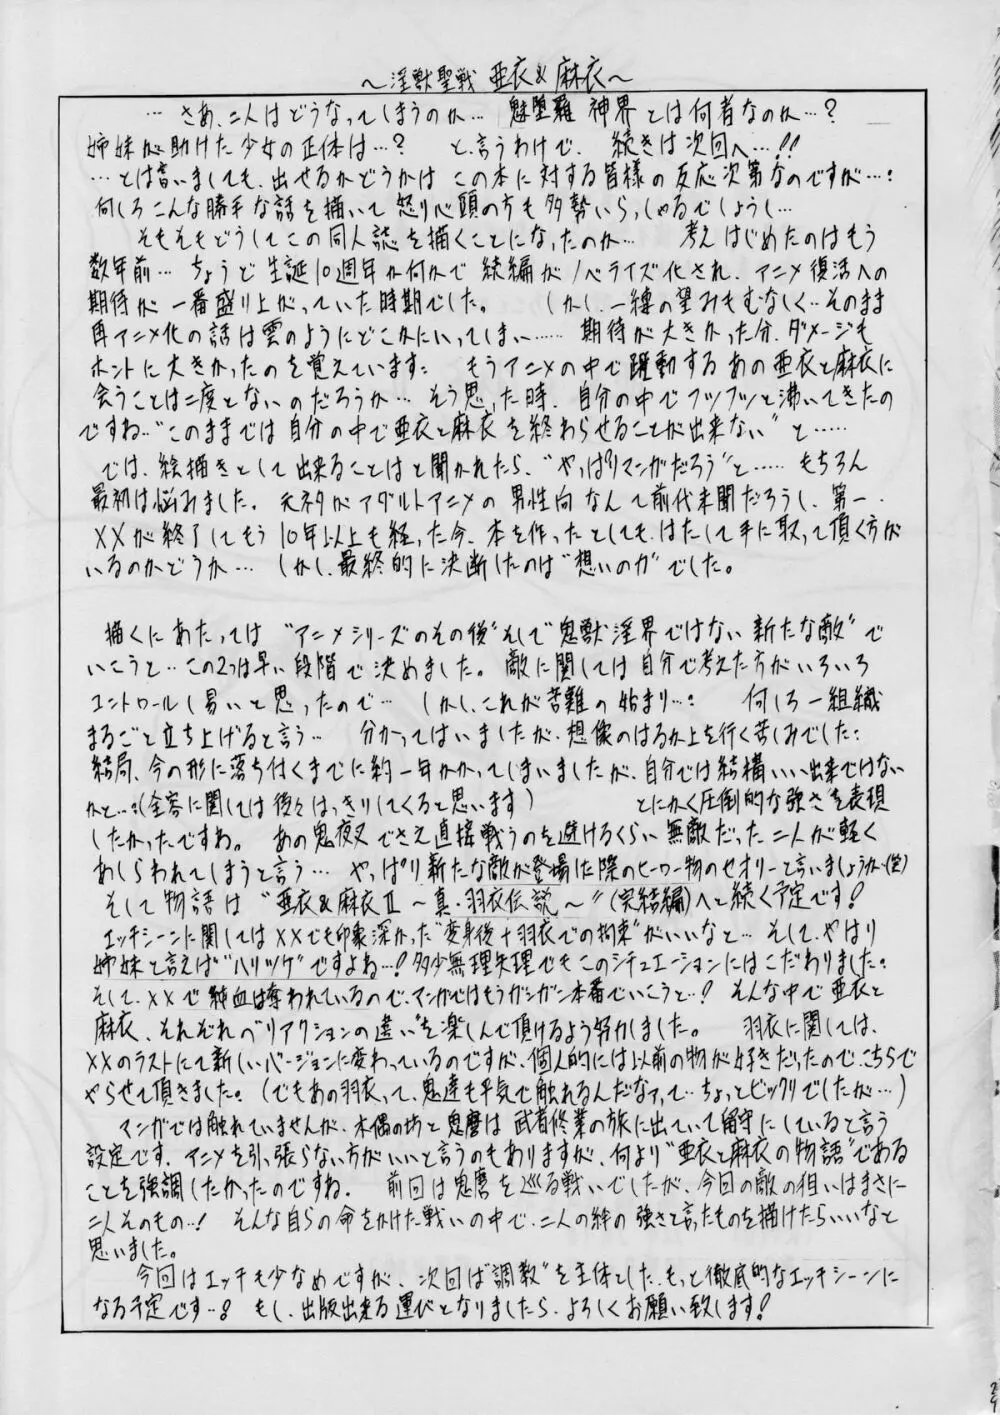 ～淫獣聖戦 亜衣&麻衣～
… さあ、二人はどうなってしまうのか… 魅堕羅 神界とは何者なのか…?
姉妹が助けた少女の正体は…? と、言うわけで、続きは次回へ…!!
…とは言いましても、出せるかどうかは この本に対する皆様の反応次第なのですが…:
何しろこんな勝手な話を描いて 怒り心頭の方も多勢いらっしゃるでしょうし…
そもそもどうしてこの同人誌を描くことになったのか… 考えはじめたのはもう
数年前… ちょうど生誕10週年か何かで 続編がノベライズ化され、アニメ復活への
期待が一番盛り上がっていた時期でした。 しかし、一縷の望みもむなしく‥そのまま
再アニメ化の話は雲のようにどこかにいってしまい…… 期待が大きかった分、ダメージも
ホントに大きかったのを覚えています: もうアニメの中で躍動するあの亜衣と麻衣に
会うことは二度とないのだろうか… そう思った時、自分の中でフツフツと沸いてきたの
ですね‥"このままでは自分の中で亜衣と麻衣を終わらせることが出来ない" と……
では、絵描きとして出来ることはと聞かれたら、"やっぱりマンガだろう"と…… もちろん
最初は悩みました。元ネタがアダルトアニメの男性向なんて前代未聞だろうし、第一、
XXが終了してもう10年以上も経った今、本を作ったとしても、はたして手に取って頂く方が
いるのかどうか… しかし、最終的に決断したのは"想いの力"でした。
描くにあたっては "アニメシリーズのその後"そして"鬼獣淫界ではない新たな敵"で
いこうと‥この2つは早い段階で決めました。敵に関しては自分で考えた方がいろいろ
コントロールし易いと思ったので… しかし、これが苦難の始まり…: 何しろ一組織
まるごと立ち上げると言う… 分かってはいましたが、想像のはるか上を行く苦しみでした:
結局、今の形に落ち付くまでに約一年かかってしまいましたが、自分では結構いい出来ではない
かと…:(全容に関しては後々はっきりしてくると思います) とにかく"圧倒的な強さ"を表現
したかったですね。 あの鬼夜叉でさえ直接戦うのを避けるくらい無敵だった二人が軽く
あしらわれてしまうと言う… やっぱり新たな敵が登場した際のヒーロー物のセオリーと言いましょうか(笑)
そして物語は "亜衣&麻衣II ～真・羽衣伝説～"(完結編)へと続く予定です!
エッチシーンに関してはXXでも印象深かった"変身後+羽衣での拘束"がいいなと… そして、やはり
姉妹と言えば"ハリツケ"ですよね…! 多少無理矢理でもこのシチュエーションにはこだわりました:
そして、XXで純血は奪われているので、マンガではもうガンガン本番でいこうと…! そんな中で亜衣と
麻衣、それぞれ"リアクションの違い"を楽しんで頂けるよう努力しました。 羽衣に関しては、
XXのラストにて新しいバージョンに変わっているのですが、個人的には以前の物が好きだったのでこちらで
やらせて頂きました。(でもあの羽衣って、鬼達も平気で触れるんだなァって… ちょっとビックリでしたが…)
マンガでは触れていませんが、木偶の坊と鬼麿は武者修業の旅に出ていて留守にしていると言う
設定です、アニメを引っ張らない方がいいと言うのもありますが、何より"亜衣と麻衣の物語"である
ことを強調したかったのですね. 前回は鬼麿を巡る戦いでしたが、今回の敵の狙いはまさに
二人そのもの‥! そんな自らの命をかけた戦いの中で、二人の絆の強さと言ったものを描けたらいいなと
思いました。
今回はエッチも少なめですが、次回は"調教"を主体とした、もっと徹底的なエッチシーンに
なる予定です‥! もし、出版出来る運びとなりましたら、よろしくお願い致します!
24